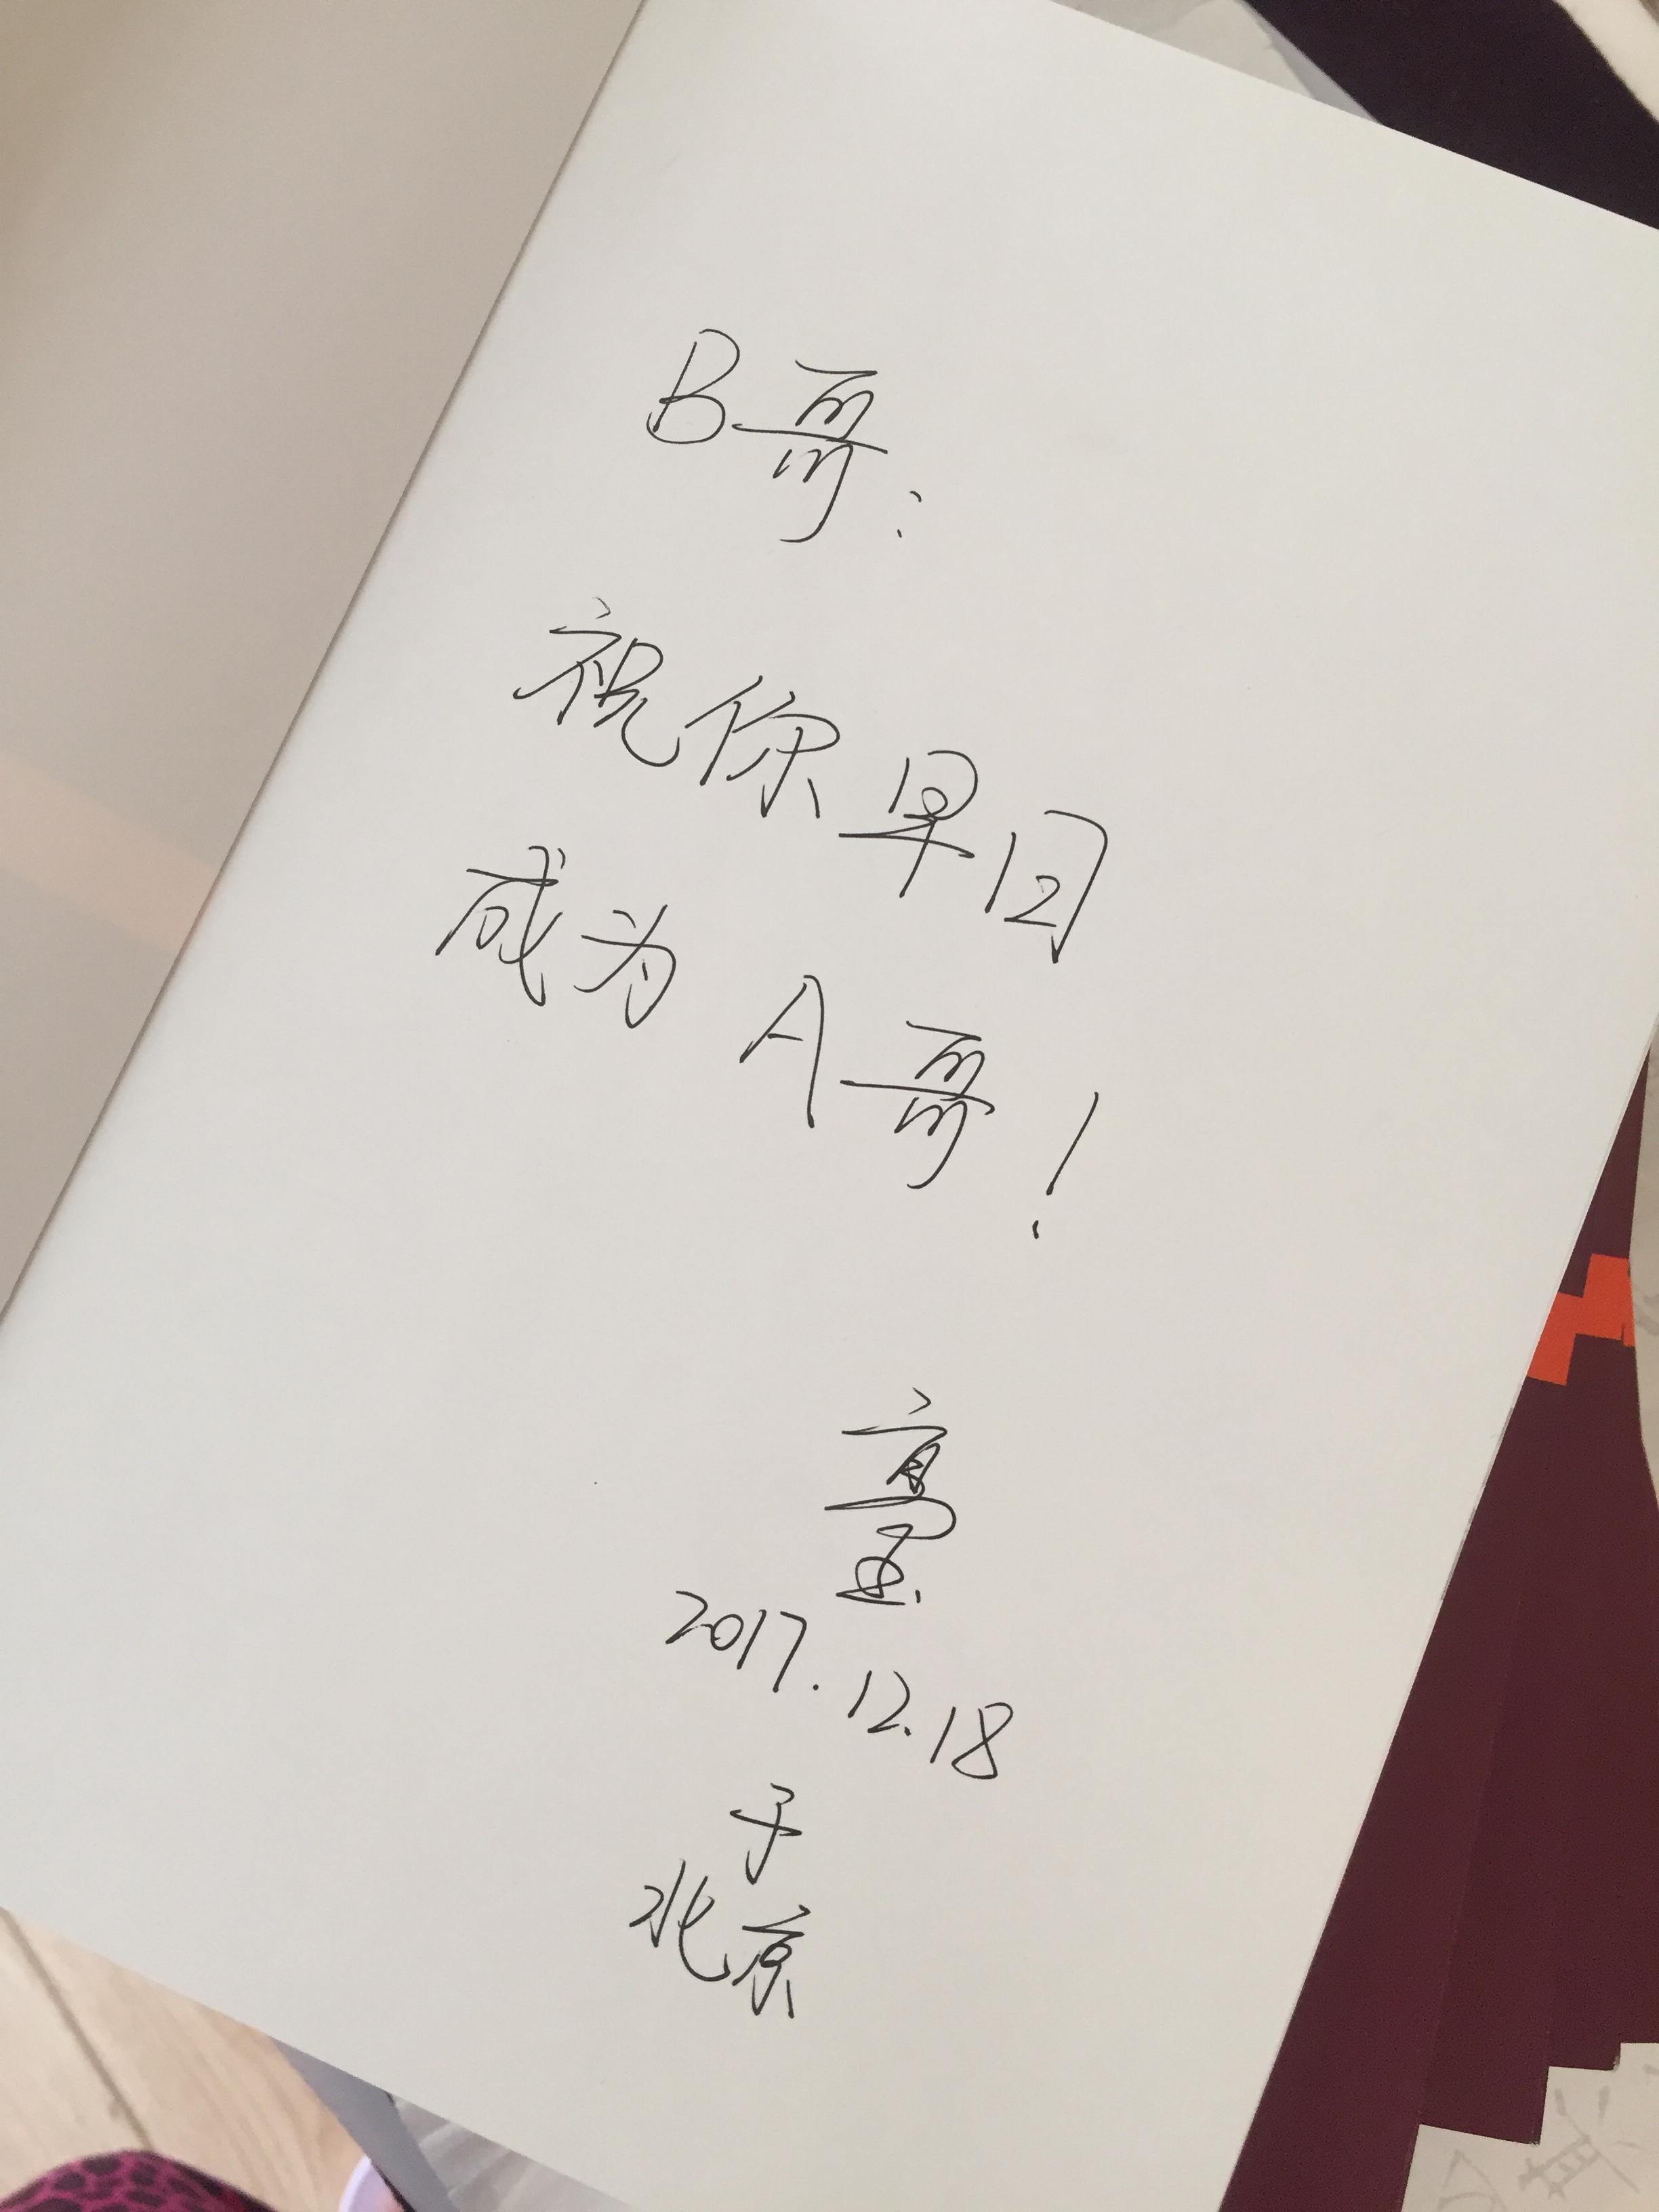 B哥：
祝你早日
成为A哥！
2017.12.18
于
北京